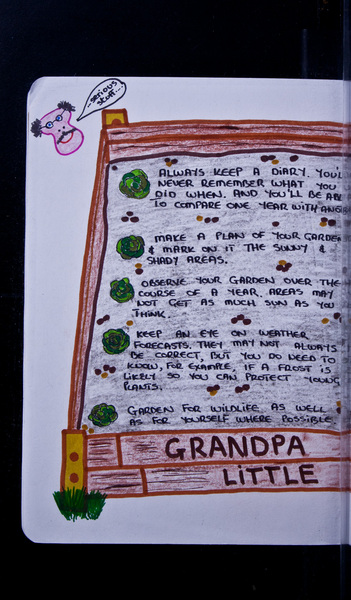 ...SERIOUS
STUFF...
ALWAYS KEEP A DIARY. YOU'L
NEVER REMEMBER WHAT YOU
DID WHEN. AND YOU'LL BE ABL
TO COMPARE ONE YEAR WITH
MAKE A PLAN OF YOUR GARDEN
& MARK ON IT THE SUNNY &
SHADY AREAS.
OBSERVE YOUR GARDEN OVER THE
COURSE OF A YEAR. AREAS MAY
NOT GET AS MUCH SUN AS YOU
THINK.
KEEP AN EYE ON WEATHER
FORECASTS. THEY MAY NOT ALWAYS
BE CORRECT, BUT YOU DO NEED TO
KNOW, FOR EXAMPLE, IF A FROST IS
LIKELY SO YOU CAN PROTECT YOUNG
PLANTS.
GARDEN FOR WILDLIFE AS WELL
AS FOR YOURSELF WHERE POSSIBLE.
GRANDPA
LiTTLE